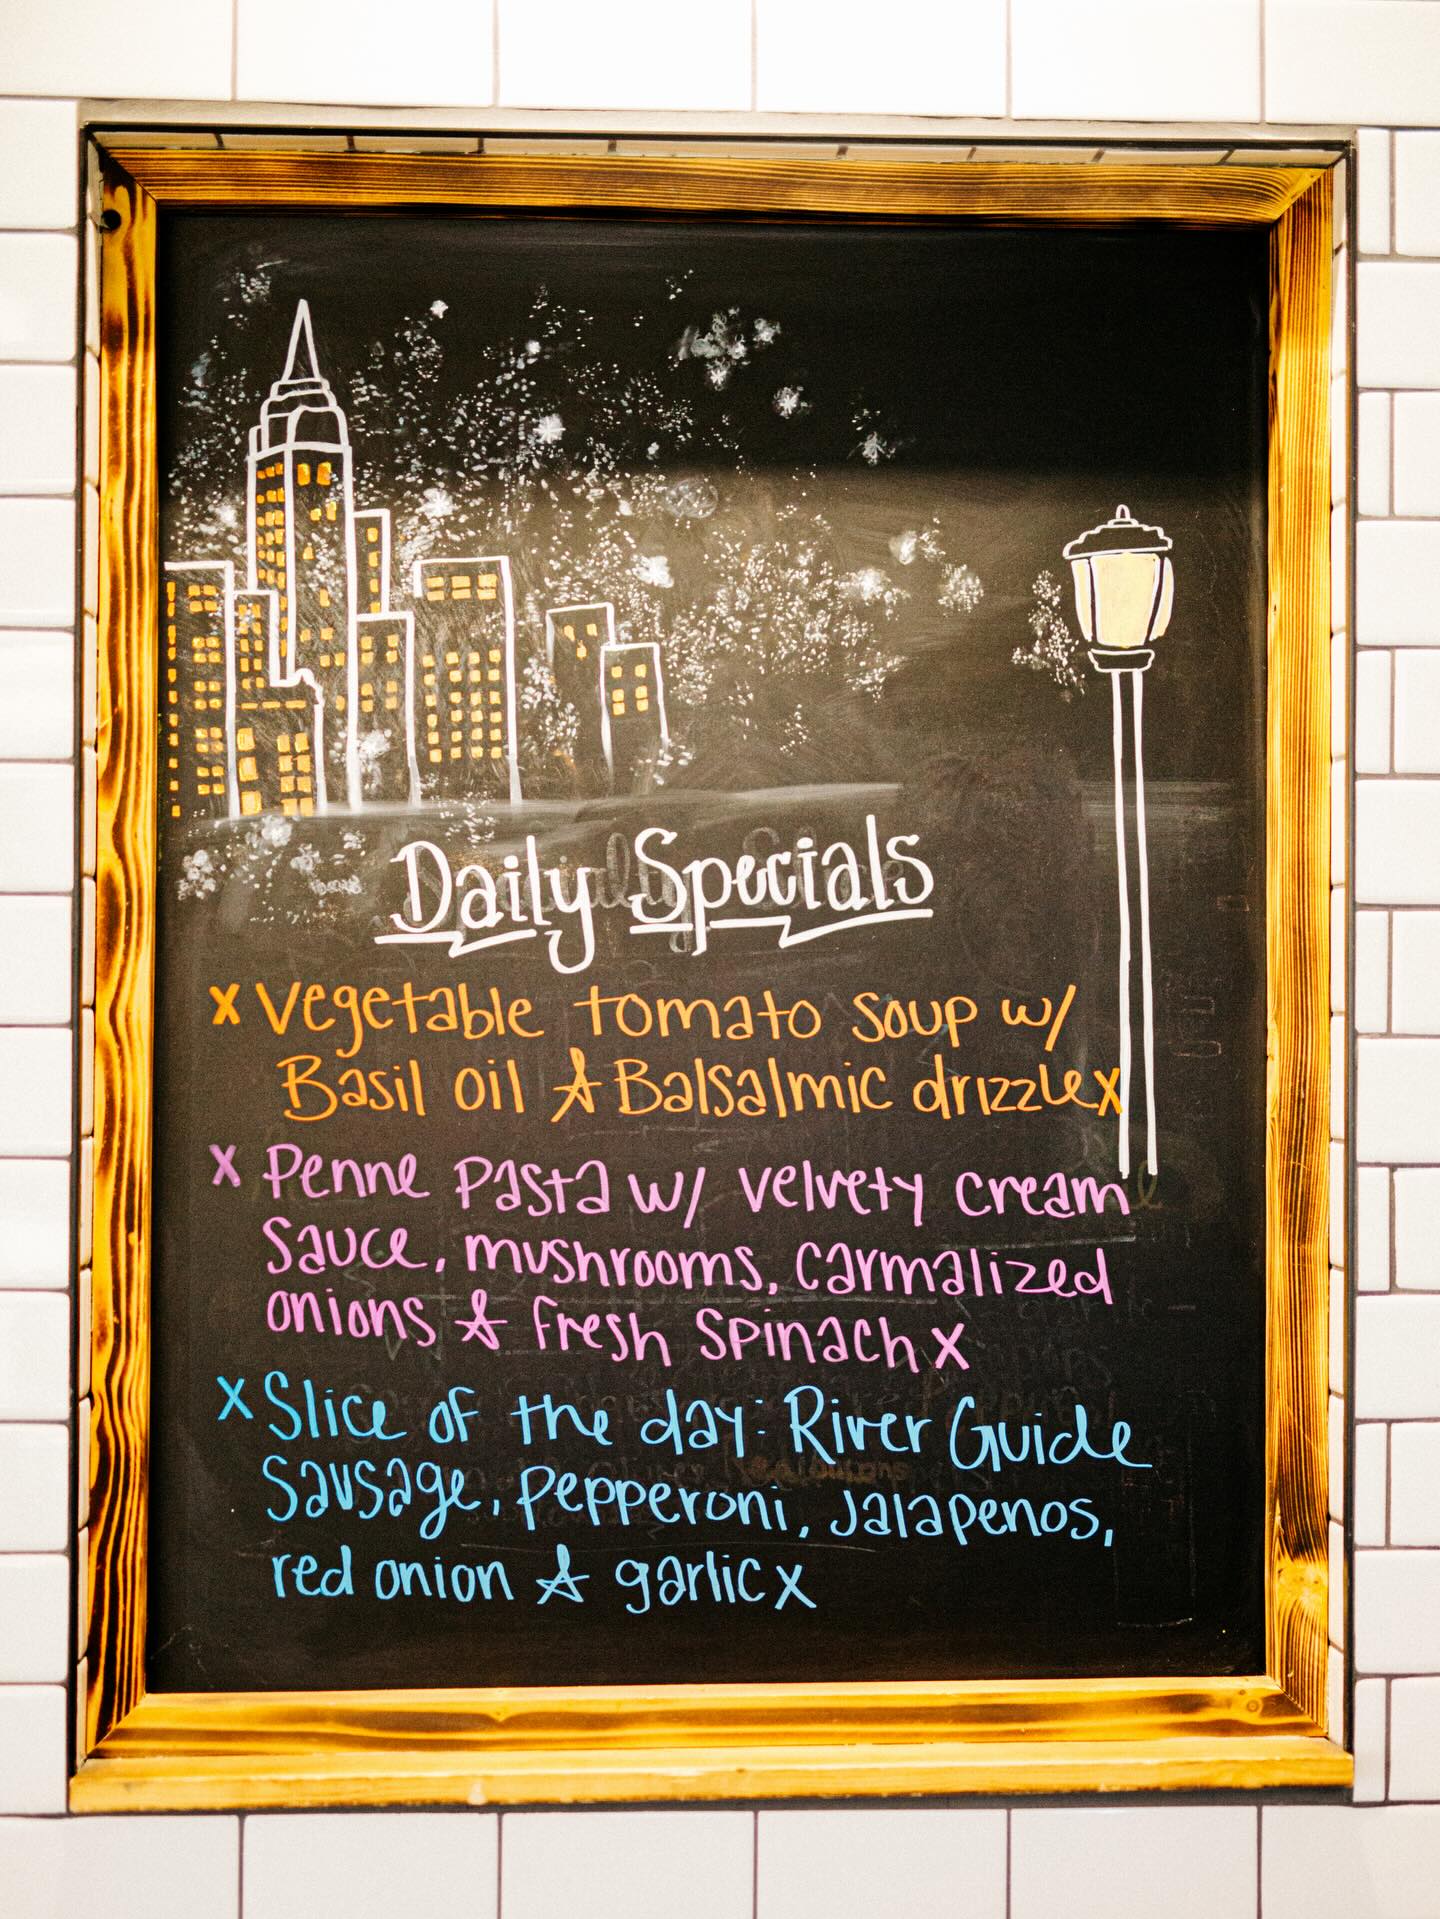 Daily Specials
x Vegetable tomato soup w/
Basil oil & Balsalmic drizzle x
x Penne pasta w/ velvety cream
sauce, mushrooms, carmalized
onions & fresh spinach x
x Slice of the day: River Guide
Sausage, pepperoni, jalapenos,
red onion & garlic x